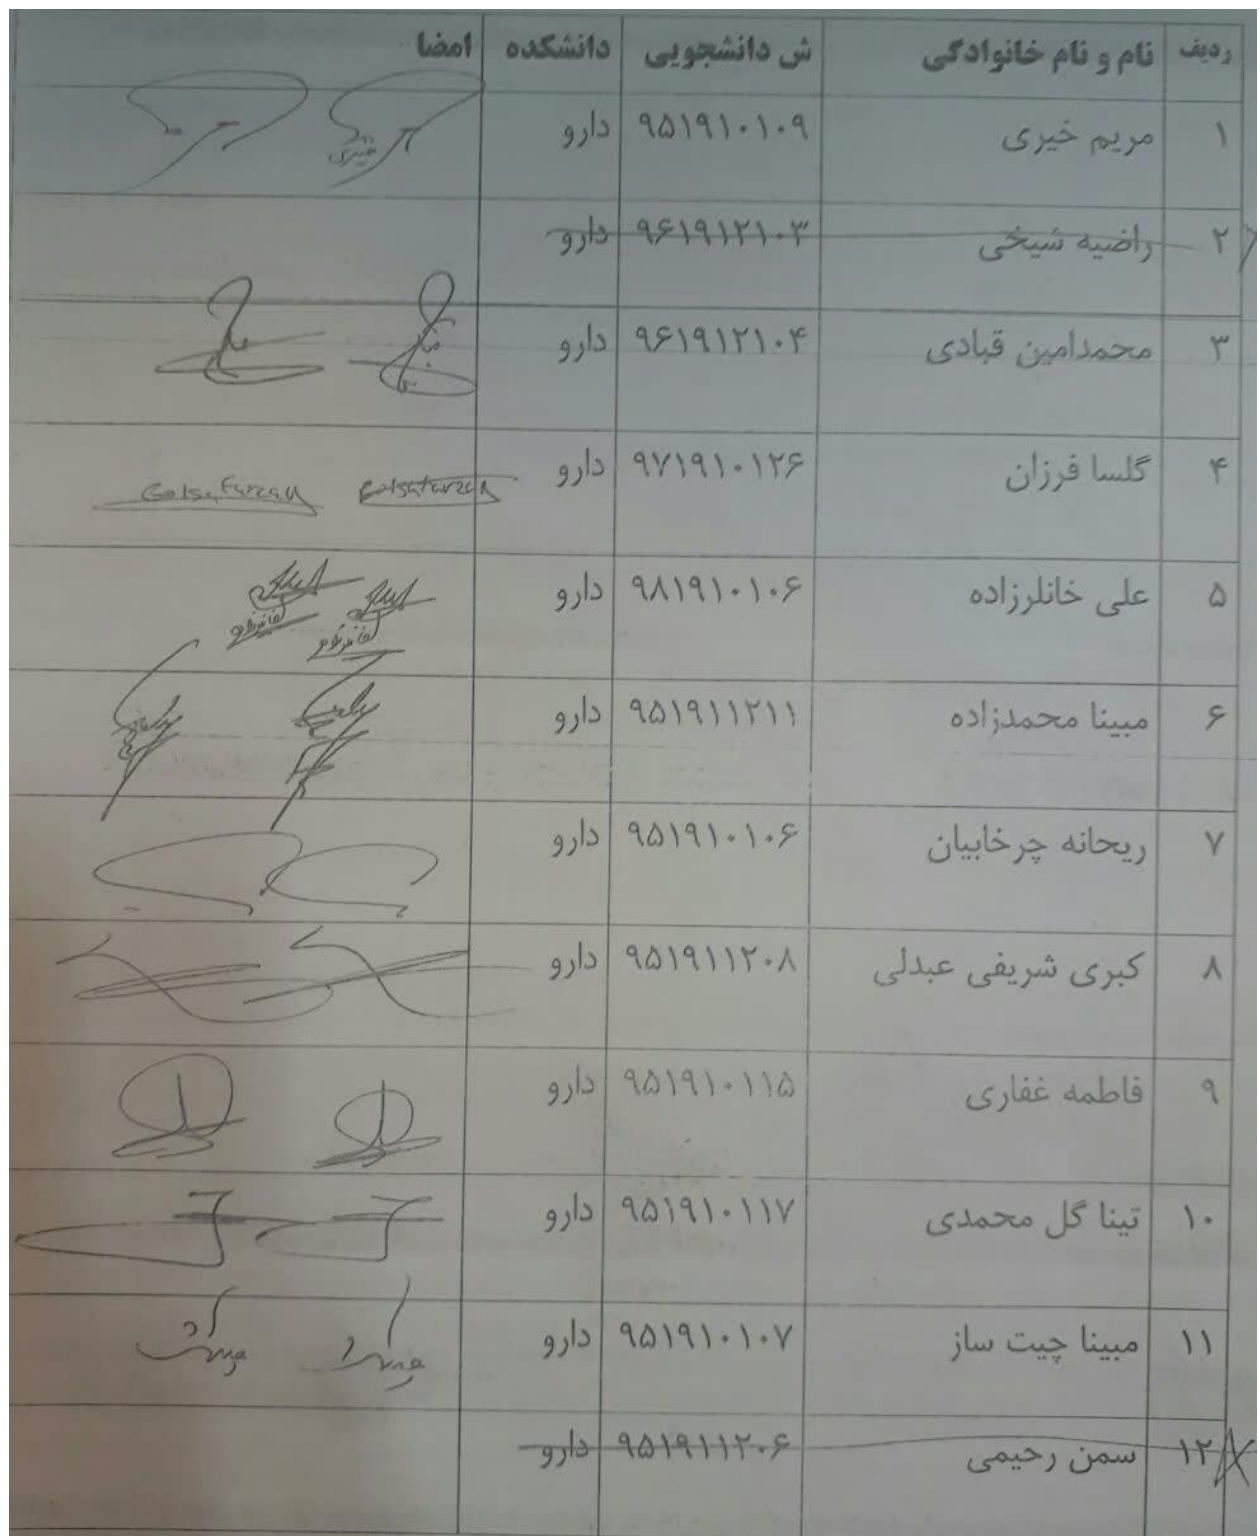 ردیف نام و نام خانوادگی ش دانشجویی دانشکده امضا
۱ مریم خیری ۹۵۱۹۱۰۱۰۹ دارو
۲ راضیه شیخی ۹۶۱۹۱۲۱۰۳ دارو
۳ محمدامین قبادی ۹۶۱۹۱۲۱۰۴ دارو
۴ گلسا فرزان ۹۷۱۹۱۰۱۲۶ دارو Golsa Farzan Golsa Farzan
۵ علی خانلرزاده ۹۸۱۹۱۰۱۰۶ دارو
۶ مبینا محمدزاده ۹۵۱۹۱۱۲۱۱ دارو
۷ ریحانه چرخابیان ۹۵۱۹۱۰۱۰۶ دارو
۸ کبری شریفی عبدلی ۹۵۱۹۱۱۲۰۸ دارو
۹ فاطمه غفاری ۹۵۱۹۱۰۱۱۵ دارو
۱۰ تینا گل محمدی ۹۵۱۹۱۰۱۱۷ دارو
۱۱ مبینا چیت ساز ۹۵۱۹۱۰۱۰۷ دارو
۱۲ سمن رحیمی ۹۵۱۹۱۱۲۰۶ دارو